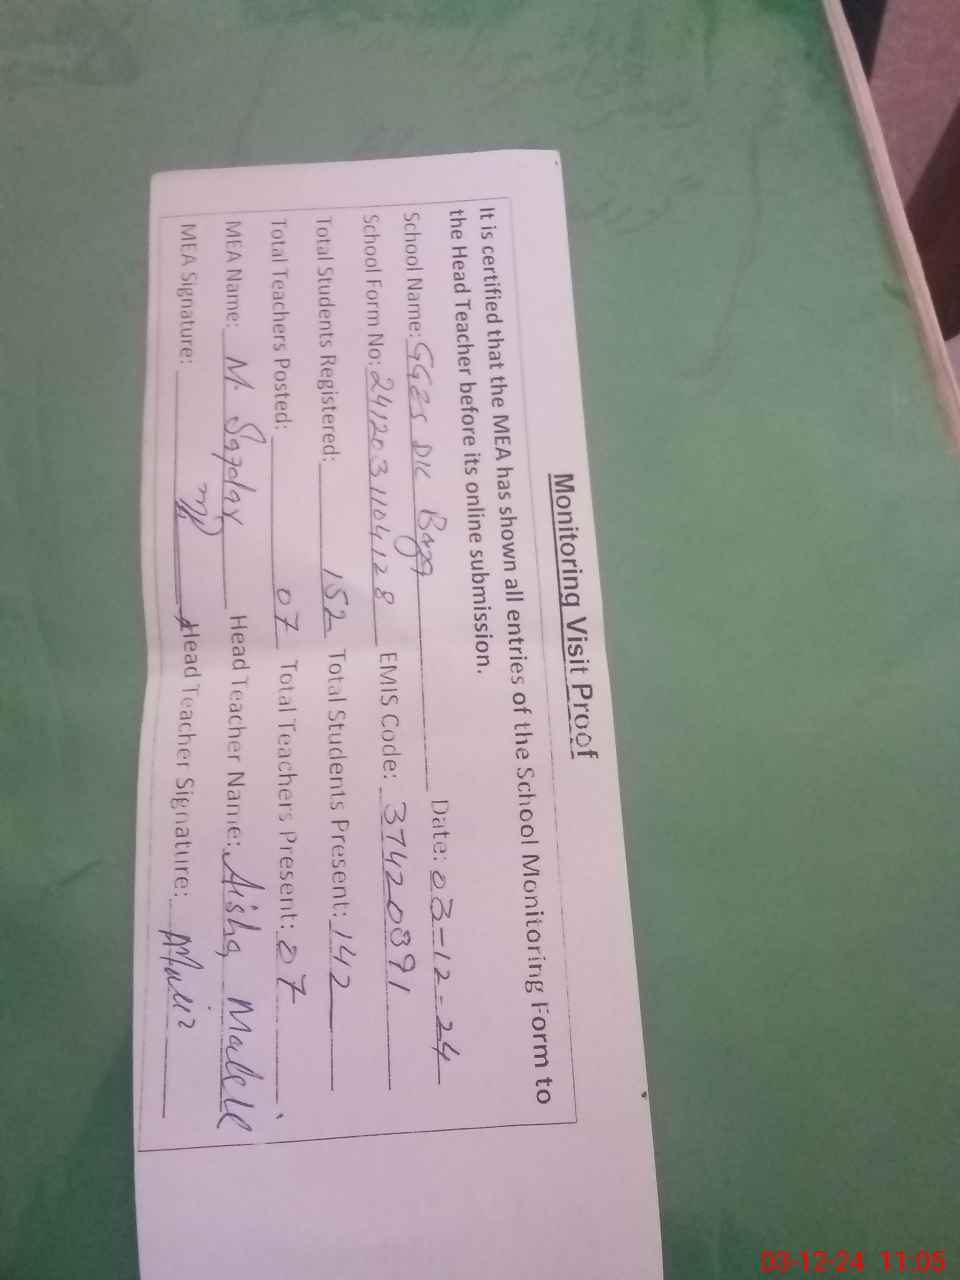 Monitoring Visit Proof
It is certified that the MEA has shown all entries of the School Monitoring Form to
the Head Teacher before its online submission.
School Name: GGES DK Date: 03-12-24
School Form No: 2412031104128 EMIS Code: 37420891
Total Students Registered: 152 Total Students Present: 142
Total Teachers Posted: 07 Total Teachers Present: 07
MEA Name: M. Head Teacher Name: Aisha
MEA Signature: Head Teacher Signature:
03-12-24 11:05